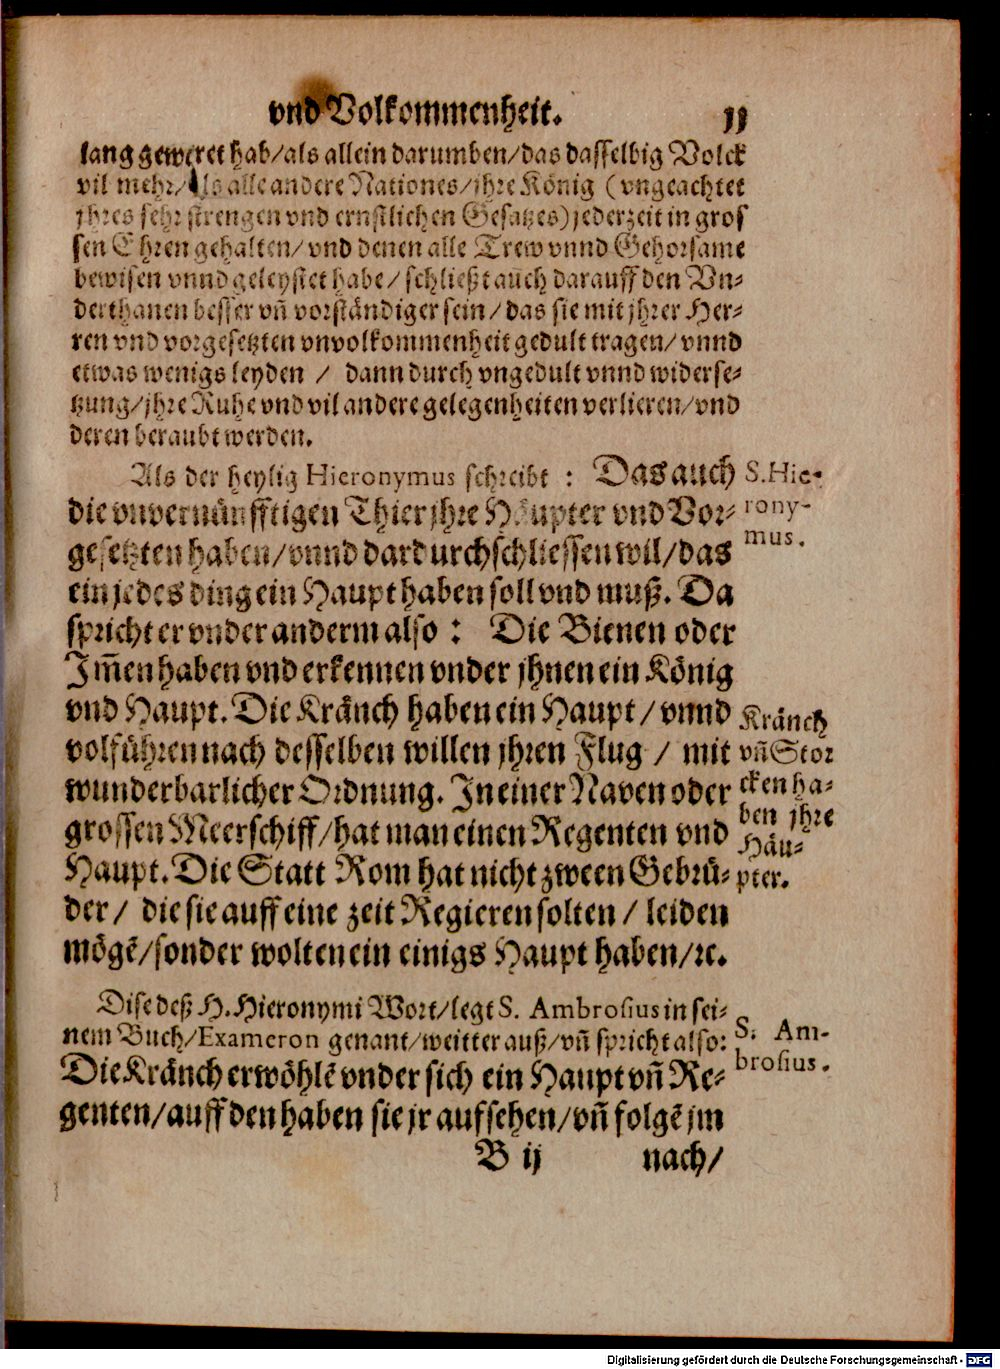 vnd Volkommenheit. 11
lang geweret hab/als allein darumben/das dasselbig Volck
vil mehr/als alle andere Nationes/jhre König (vngeachtet
jhres sehr strengen vnd ernstlichen Gesatzes) jederzeit in gros
sen Ehren gehalten/ vnd denen alle Trew vnnd Gehorsame
bewisen vnnd geleystet habe/ schließt auch darauff den Vn-
derthanen besser vñ vorständiger sein/ das sie mit jhrer Her-
ren vnd vorgesetzten vnvolkommenheit gedult tragen/ vnnd
etwas wenigs leyden / dann durch vngedult vnnd widerse-
tzung/jhre Ruhe vnd vil andere gelegenheiten verlieren/vnd
deren beraubt werden.
Als der heylig Hieronymus schreibt : Das auch
die vnvernünfftigen Thier jhre Häupter vnd Vor-
gesetzten haben/vnnd dardurch schliessen wil/das
ein jedes ding ein Haupt haben soll vnd muß. Da
spricht er vnder anderm also : Die Bienen oder
Im̃en haben vnd erkennen vnder jhnen ein König
vnd Haupt. Die Kränch haben ein Haupt/ vnnd
volführen nach desselben willen jhren Flug / mit
wunderbarlicher Ordnung. In einer Naven oder
grossen Meerschiff/hat man einen Regenten vnd
Haupt. Die Statt Rom hat nicht zween Gebrü-
der/ die sie auff eine zeit Regieren solten/ leiden
mögẽ/sonder wolten ein einigs Haupt haben/ꝛc.
S. Hie-
rony-
mus.
Kränch
vñ Stor
cken ha-
ben jhre
Häu-
pter.
Dise deß H. Hieronymi Wort/legt S. Ambrosius in sei-
nem Buch/Exameron genant/weitter auß/vñ spricht also:
Die Kränch erwöhlẽ vnder sich ein Haupt vñ Re-
genten/auff den haben sie jr aufsehen/vñ folgẽ jm
S. Am-
brosius.
B ij nach/
Digitalisierung gefördert durch die Deutsche Forschungsgemeinschaft - DFG